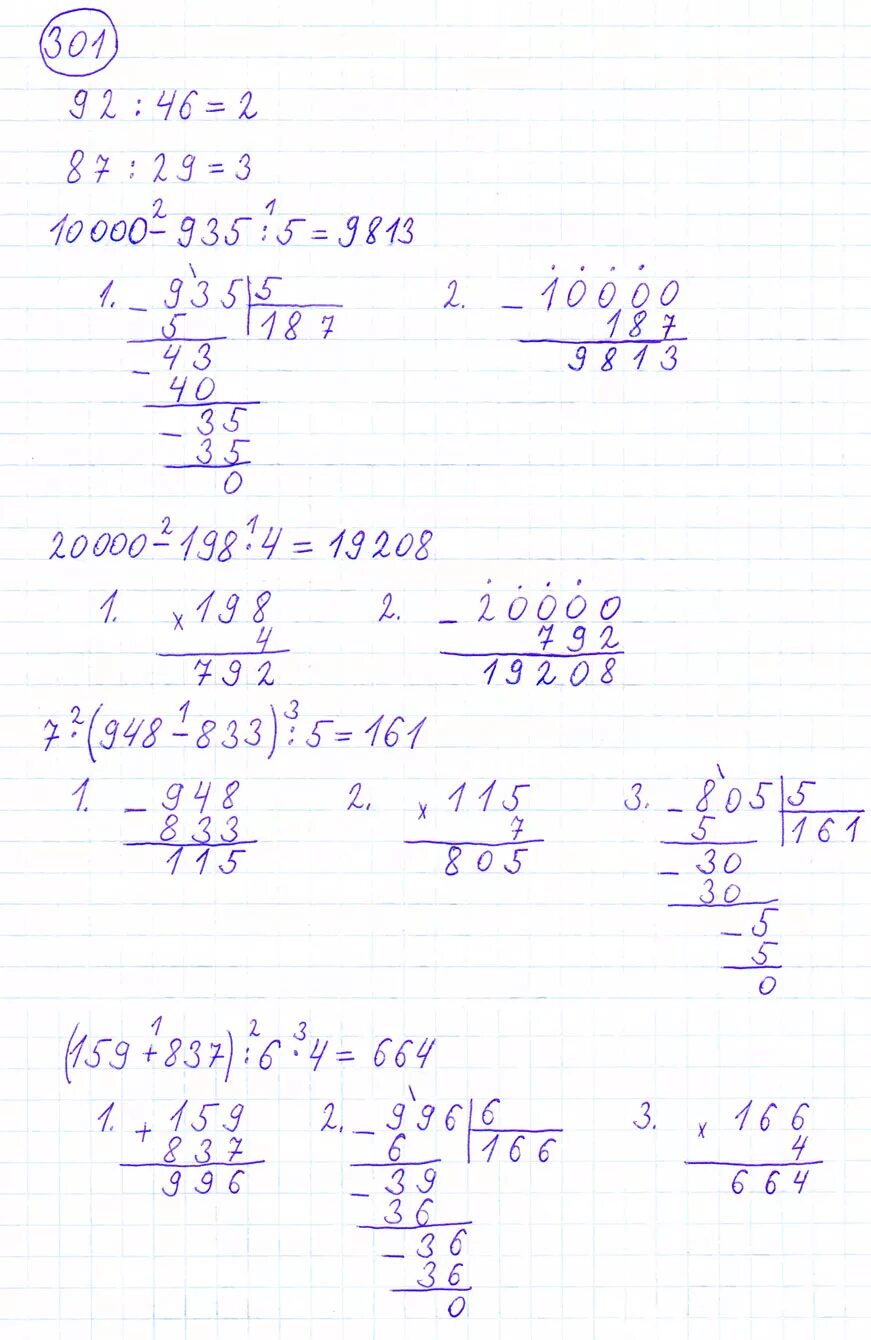 301
92 : 46 = 2
87 : 29 = 3
10000 - 935 : 5 = 9813
2 1
1. - 935 | 5 2. - 10000
5 187 187
- 43 9813
40
- 35
35
0
20000 - 198 · 4 = 19208
2 1
1. x 198 2. - 20000
4 792
792 19208
7 · (948 - 833) : 5 = 161
2 1 3
1. - 948 2. x 115 3. - 805 | 5
833 7 5 161
115 805 - 30
30
- 5
5
0
(159 + 837) : 6 · 4 = 664
1 2 3
1. + 159 2. - 996 | 6 3. x 166
837 6 166 4
996 - 39 664
36
- 36
36
0